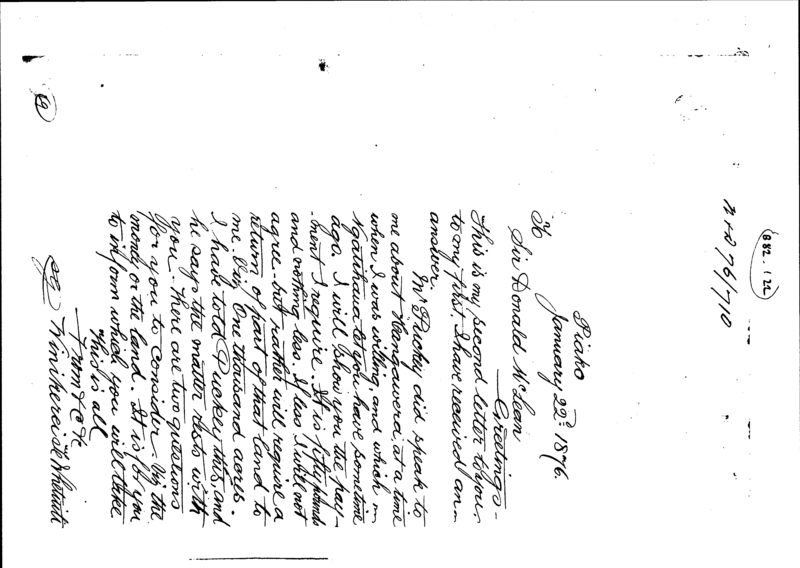 (882.122)
76/710
Piako
January 22d 1876.
To
Sir Donald McLean
Greetings-
This is my second letter to you
to my first I have received an
answer.
Mr Puckey did speak to
me about at a time
when I was willing, and which
to you have sometime
ago. I will show you the pay-
-ment I require. It is fifty pounds
and nothing less. If less I will not
agree. but rather will require a
return of part of that land to
me. Viz One thousand acres.
I have told Puckey this, and
he says the matter rests with
you. There are two questions
for you to consider. Viz the
money or the land. It is for you
to inform which you will take
This is all
From
69